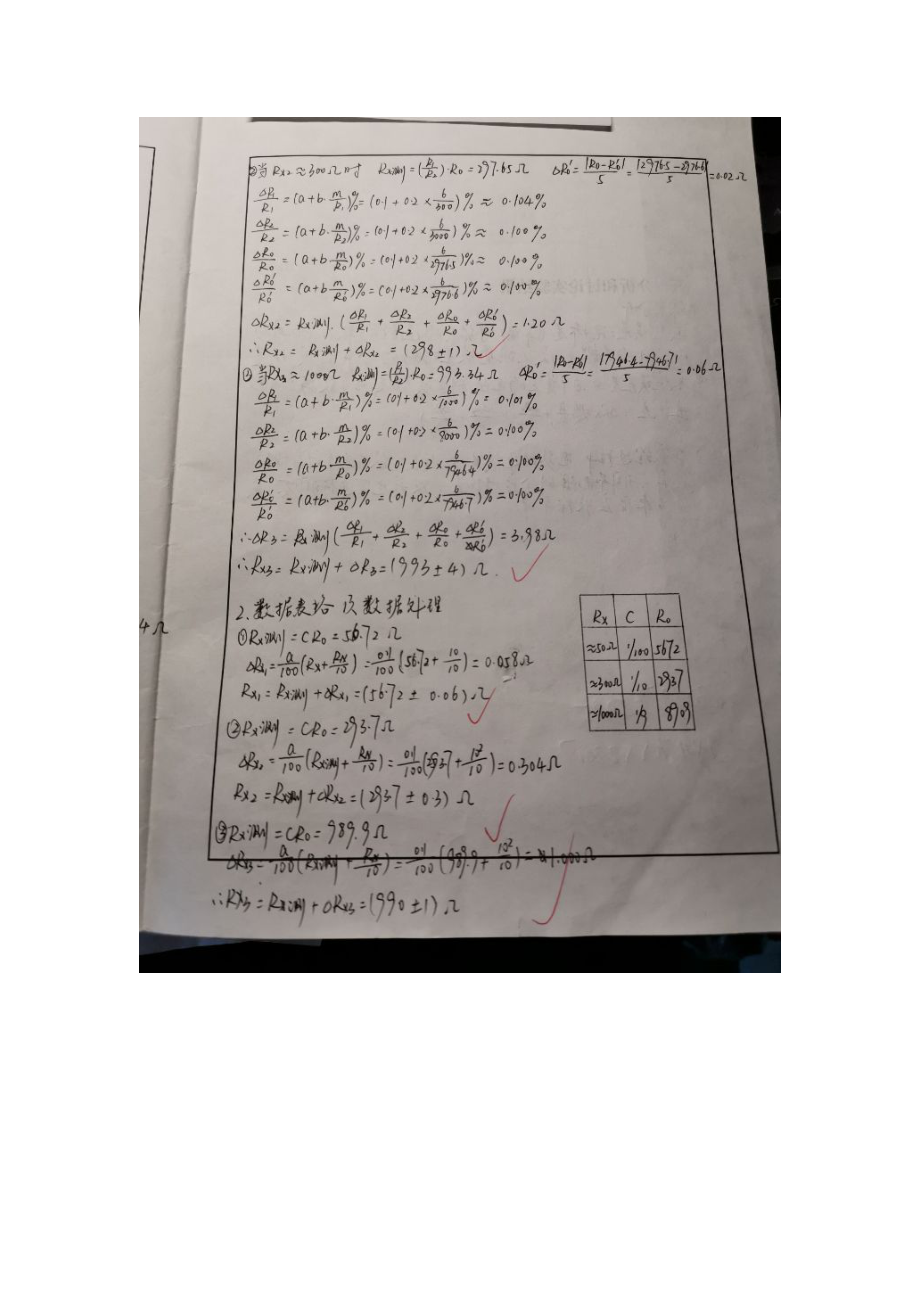 ②当Rx2≈300Ω时 Rx测=(R1/R2)·R0=297.65Ω ΔR0'=|R0-R0'|/5=|2976.5-2976.6|/5=0.02Ω
ΔR1/R1=(a+b·m/R1)%=(0.1+0.2×6/300)%≈0.104%
ΔR2/R2=(a+b·m/R2)%=(0.1+0.2×6/3000)%≈0.100%
ΔR0/R0=(a+b·m/R0)%=(0.1+0.2×6/2976.5)%≈0.100%
ΔR0'/R0'=(a+b·m/R0')%=(0.1+0.2×6/2976.6)%≈0.100%
ΔRx2=Rx测·(ΔR1/R1+ΔR2/R2+ΔR0/R0+ΔR0'/R0')=1.20Ω
∴Rx2=Rx测+ΔRx2=(298±1)Ω
当Rx3≈1000Ω Rx测=(R1/R2)·R0=993.34Ω ΔR0'=|R0-R0'|/5=|7946.4-7946.7|/5=0.06Ω
ΔR1/R1=(a+b·m/R1)%=(0.1+0.2×6/1000)%=0.101%
ΔR2/R2=(a+b·m/R2)%=(0.1+0.2×6/8000)%=0.100%
ΔR0/R0=(a+b·m/R0)%=(0.1+0.2×6/7946.4)%=0.100%
ΔR0'/R0'=(a+b·m/R0')%=(0.1+0.2×6/7946.7)%=0.100%
∴ΔR3=Rx测(ΔR1/R1+ΔR2/R2+ΔR0/R0+ΔR0'/R0')=3.98Ω
∴Rx3=Rx测+ΔR3=(993±4)Ω.
4Ω
2.数据表格 及数据处理
Rx C R0
≈50Ω 1/100 5672
≈300Ω 1/10 2937
≈1000Ω 1/9 8909
①Rx测=CR0=56.72Ω
ΔRx1=a/100(Rx+RN/10)=0.1/100(56.72+10/10)=0.058Ω
Rx1=Rx测+ΔRx1=(56.72±0.06)Ω
②Rx测=CR0=293.7Ω
ΔRx2=a/100(Rx测+RN/10)=0.1/100(293.7+10²/10)=0.304Ω
Rx2=Rx测+ΔRx2=(293.7±0.3)Ω
③Rx测=CR0=989.9Ω
ΔRx3=a/100(Rx测+RN/10)=0.1/100(989.9+10²/10)=1.000Ω
∴Rx3=Rx测+ΔRx3=(990±1)Ω